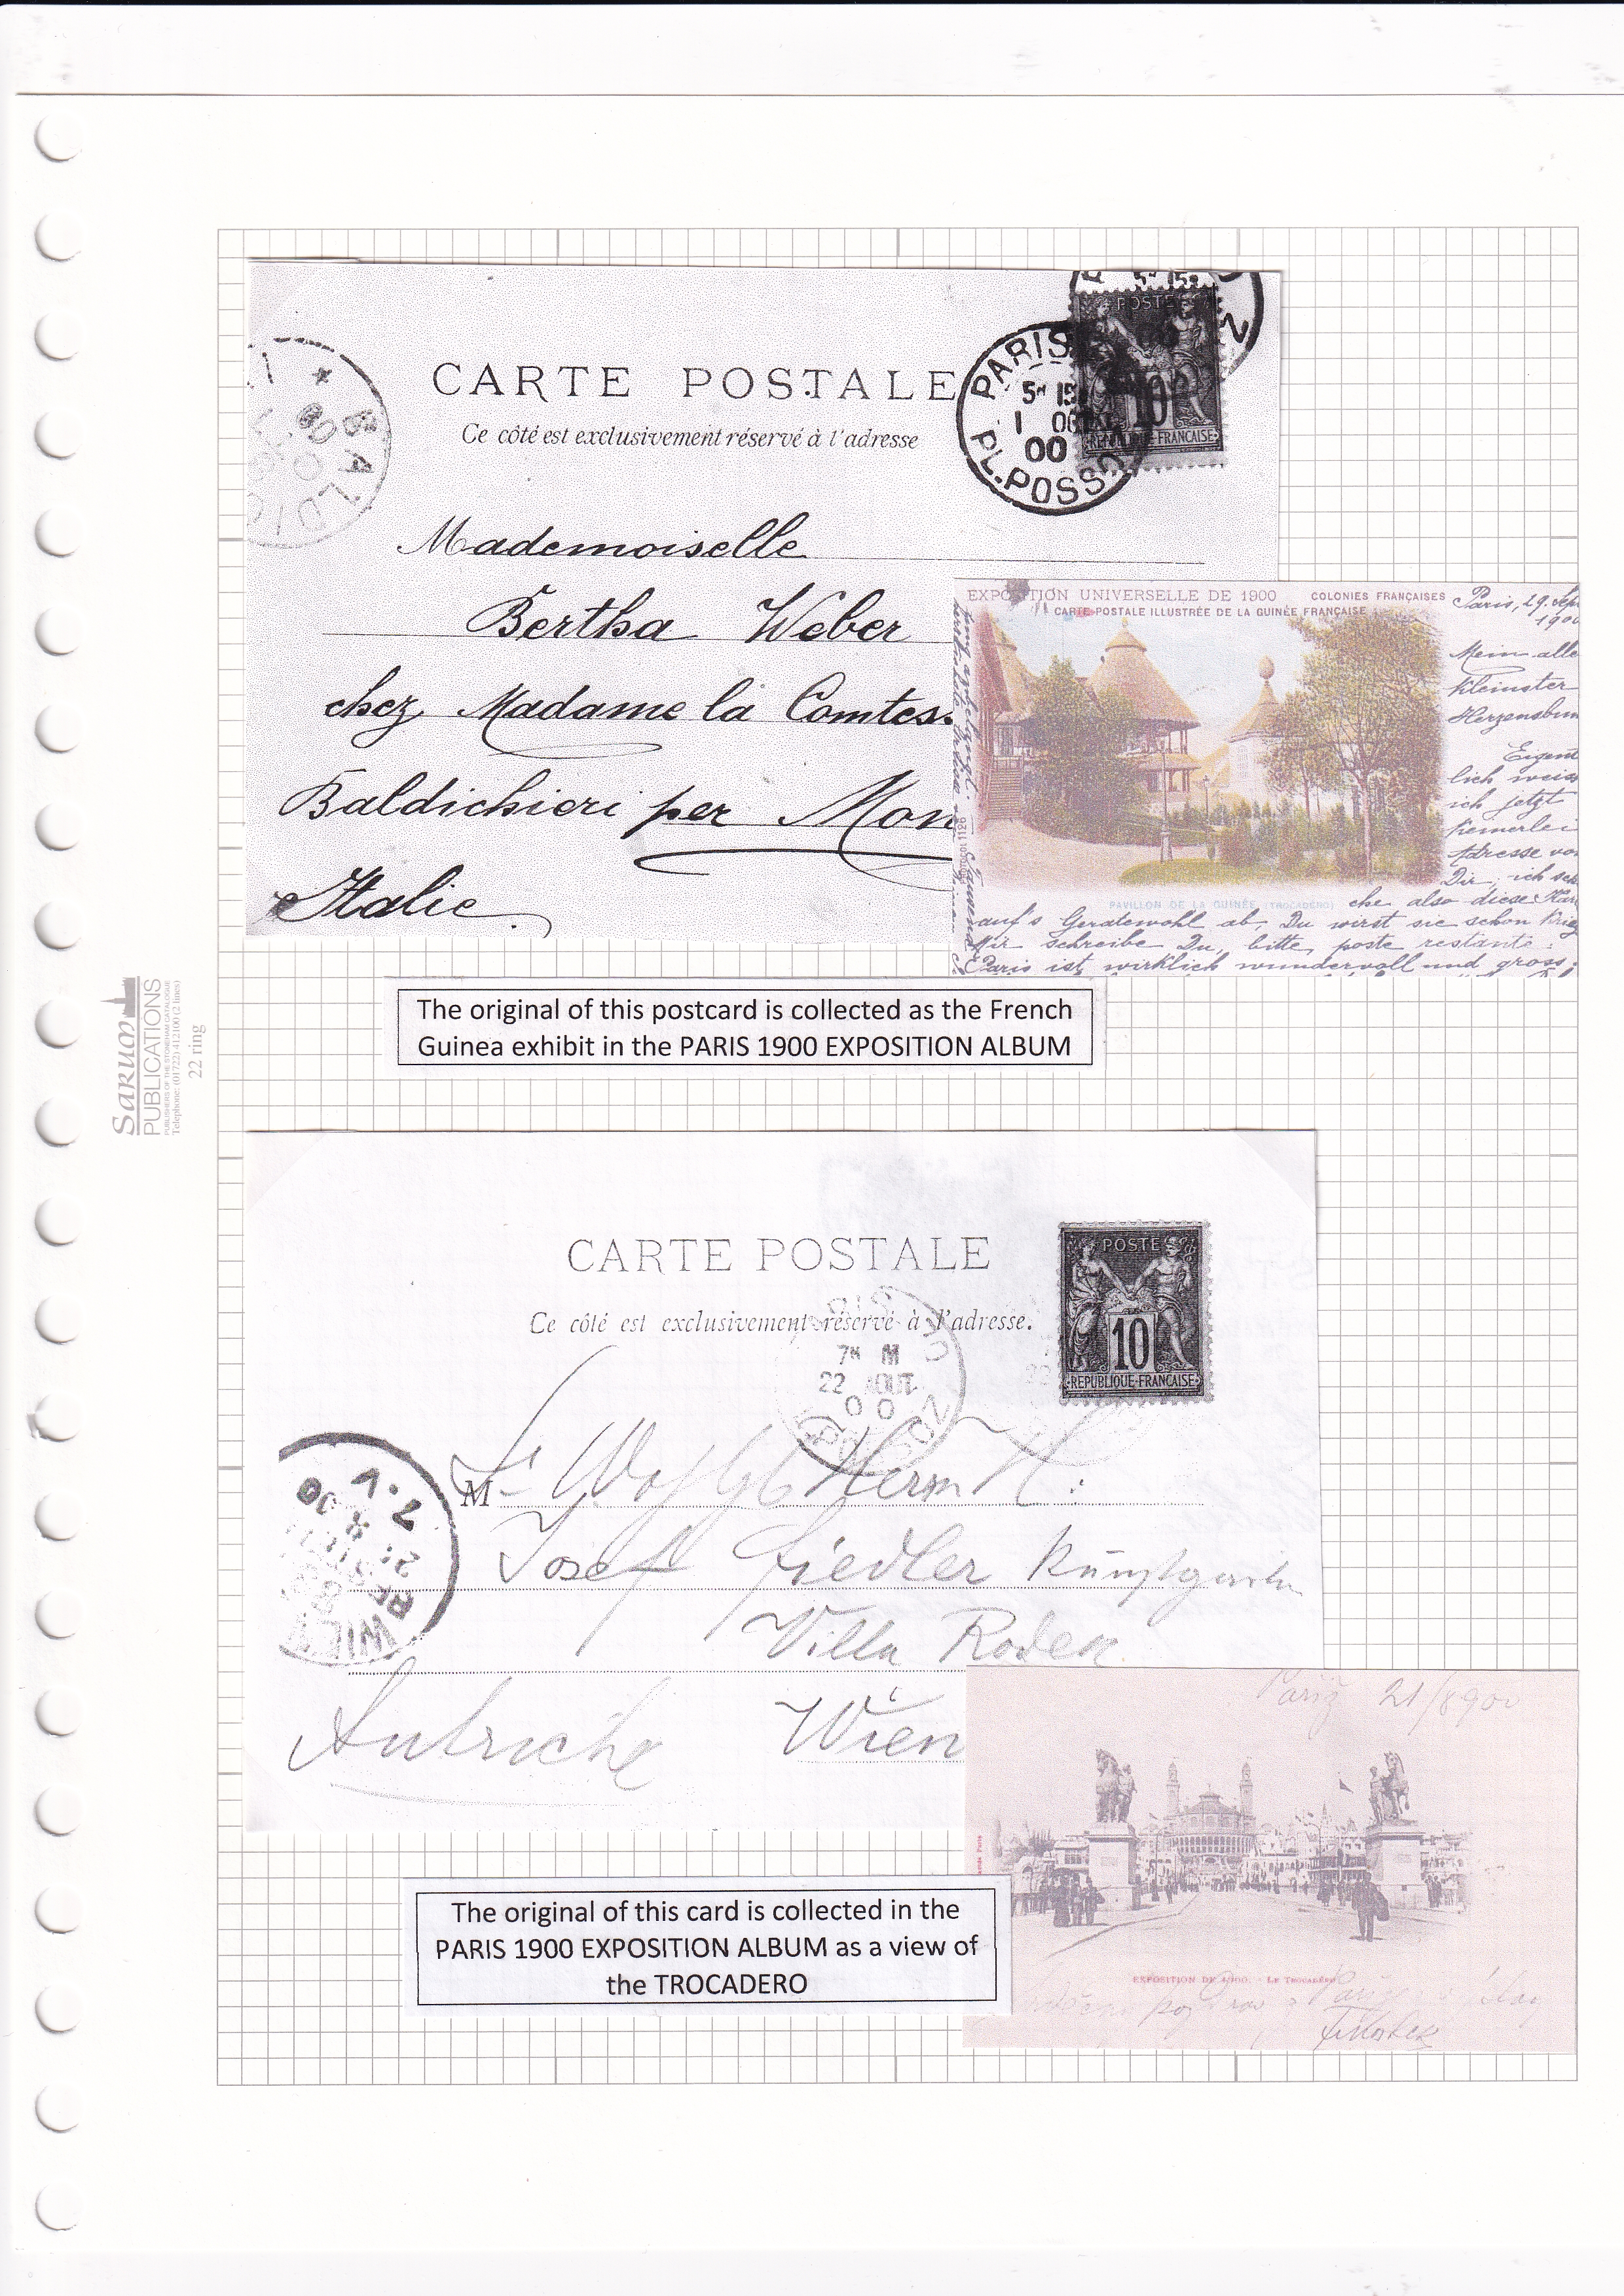 CARTE POSTALE
Ce côté est exclusivement réservé à l'adresse
PARIS
5ᴱ 15
1 OCT
00
PL. POSSOZ
POSTE
10
REPUBLIQUE FRANCAISE
Mademoiselle
Bertha Weber
chez Madame la Comtes
Baldichieri per Mon
Italie
EXPOSITION UNIVERSELLE DE 1900 COLONIES FRANÇAISES
CARTE POSTALE ILLUSTRÉE DE LA GUINÉE FRANÇAISE
Paris, 29. Sep
1900
Mein alle
kleinster
Herzensbun
Eigent
lich weiss
ich jetzt
keinerlei
Adresse von
Dir, ich
PAVILLON DE LA GUINÉE (TROCADÉRO)
che also diese Kar
auf's Geratewohl ab, Du wirst sie schon krieg
Mir schreibe Du, bitte, poste restante.
Paris ist wirklich wundervoll und gross
The original of this postcard is collected as the French
Guinea exhibit in the PARIS 1900 EXPOSITION ALBUM
Sarum
PUBLICATIONS
PUBLISHERS OF THE STONEHAM CATALOGUE
Telephone: (01722) 412100 (2 lines)
22 ring
CARTE POSTALE
Ce côté est exclusivement réservé à l'adresse.
POSTE
10
REPUBLIQUE FRANCAISE
7ᴱ M
22 AOUT
00
M
Herrn
Josef Fiedler
Villa Rodek
Autriche Wien
WIEN
7.V
Pariz 21/8 900
EXPOSITION DE 1900. - LE TROCADÉRO
The original of this card is collected in the
PARIS 1900 EXPOSITION ALBUM as a view of
the TROCADERO